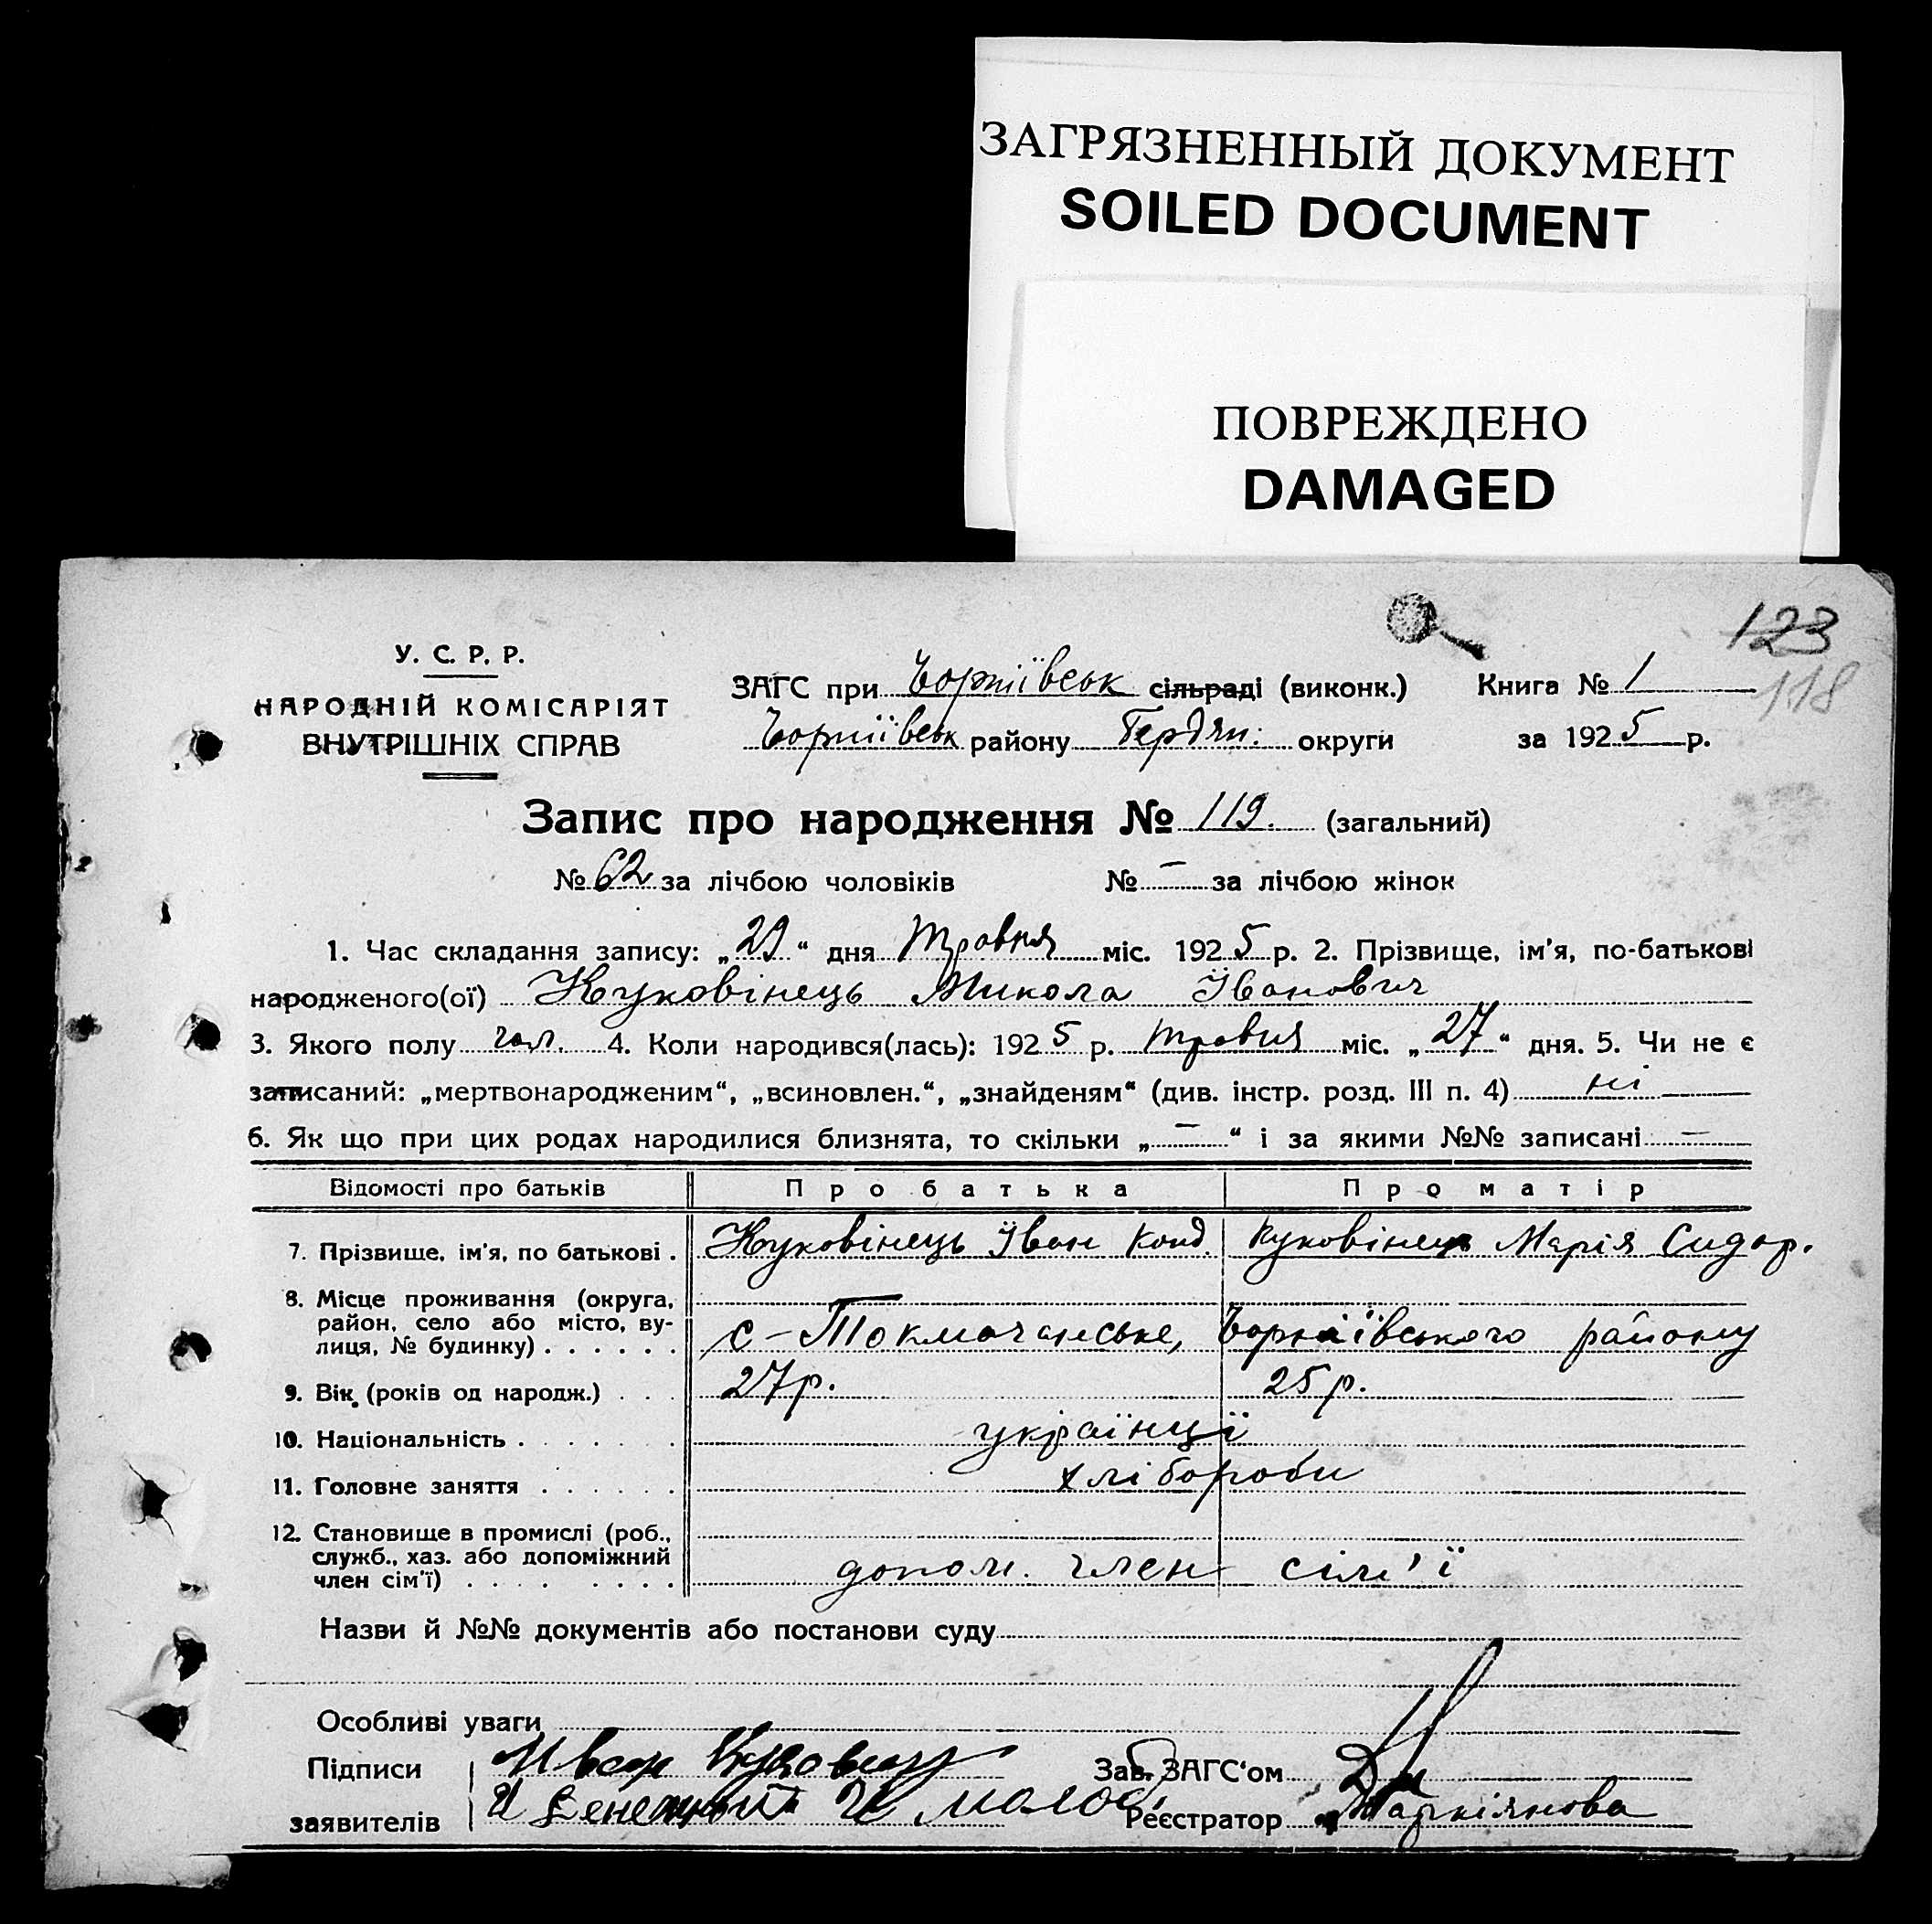 ЗАГРЯЗНЕННЫЙ ДОКУМЕНТ
SOILED DOCUMENT
ПОВРЕЖДЕНО
DAMAGED
123
118
У. С. Р. Р.
НАРОДНІЙ КОМІСАРІЯТ
ВНУТРІШНІХ СПРАВ
ЗАГС при Чорніївськ сільраді (виконк.) Книга № 1
Чорніївськ району Бердян: округи за 1925 р.
Запис про народження № 119. (загальний)
№ 62 за лічбою чоловіків № – за лічбою жінок
1. Час складання запису: „29“ дня Травня міс. 1925 р. 2. Прізвище, ім'я, по-батькові
народженого(ої) Куковінець Микола Іванович
3. Якого полу чол. 4. Коли народився(лась): 1925 р. травня міс. „27“ дня. 5. Чи не є
записаний: „мертвонародженим“, „всиновлен.“, „знайденям“ (див. інстр. розд. III п. 4) ні
6. Як що при цих родах народилися близнята, то скільки „–“ і за якими №№ записані –
Відомості про батьків Про батька Про матір
7. Прізвище, ім'я, по батькові . Куковінець Іван Конд. Куковінець Марія Сидор.
8. Місце проживання (округа,
район, село або місто, ву-
лиця, № будинку) . . . . . . с – Токмачанське, Чорніївського району
9. Вік (років од народж.) . . . 27 р. 25 р.
10. Національність . . . . . . українці
11. Головне заняття . . . . . . хлібороби
12. Становище в промислі (роб.,
служб., хаз. або допоміжний
член сім'ї) . . . . . . . . допом. член сім'ї
Назви й №№ документів або постанови суду
Особливі уваги
Підписи Иван
Зав. ЗАГС'ом
заявителів
Реєстратор Маркіянова